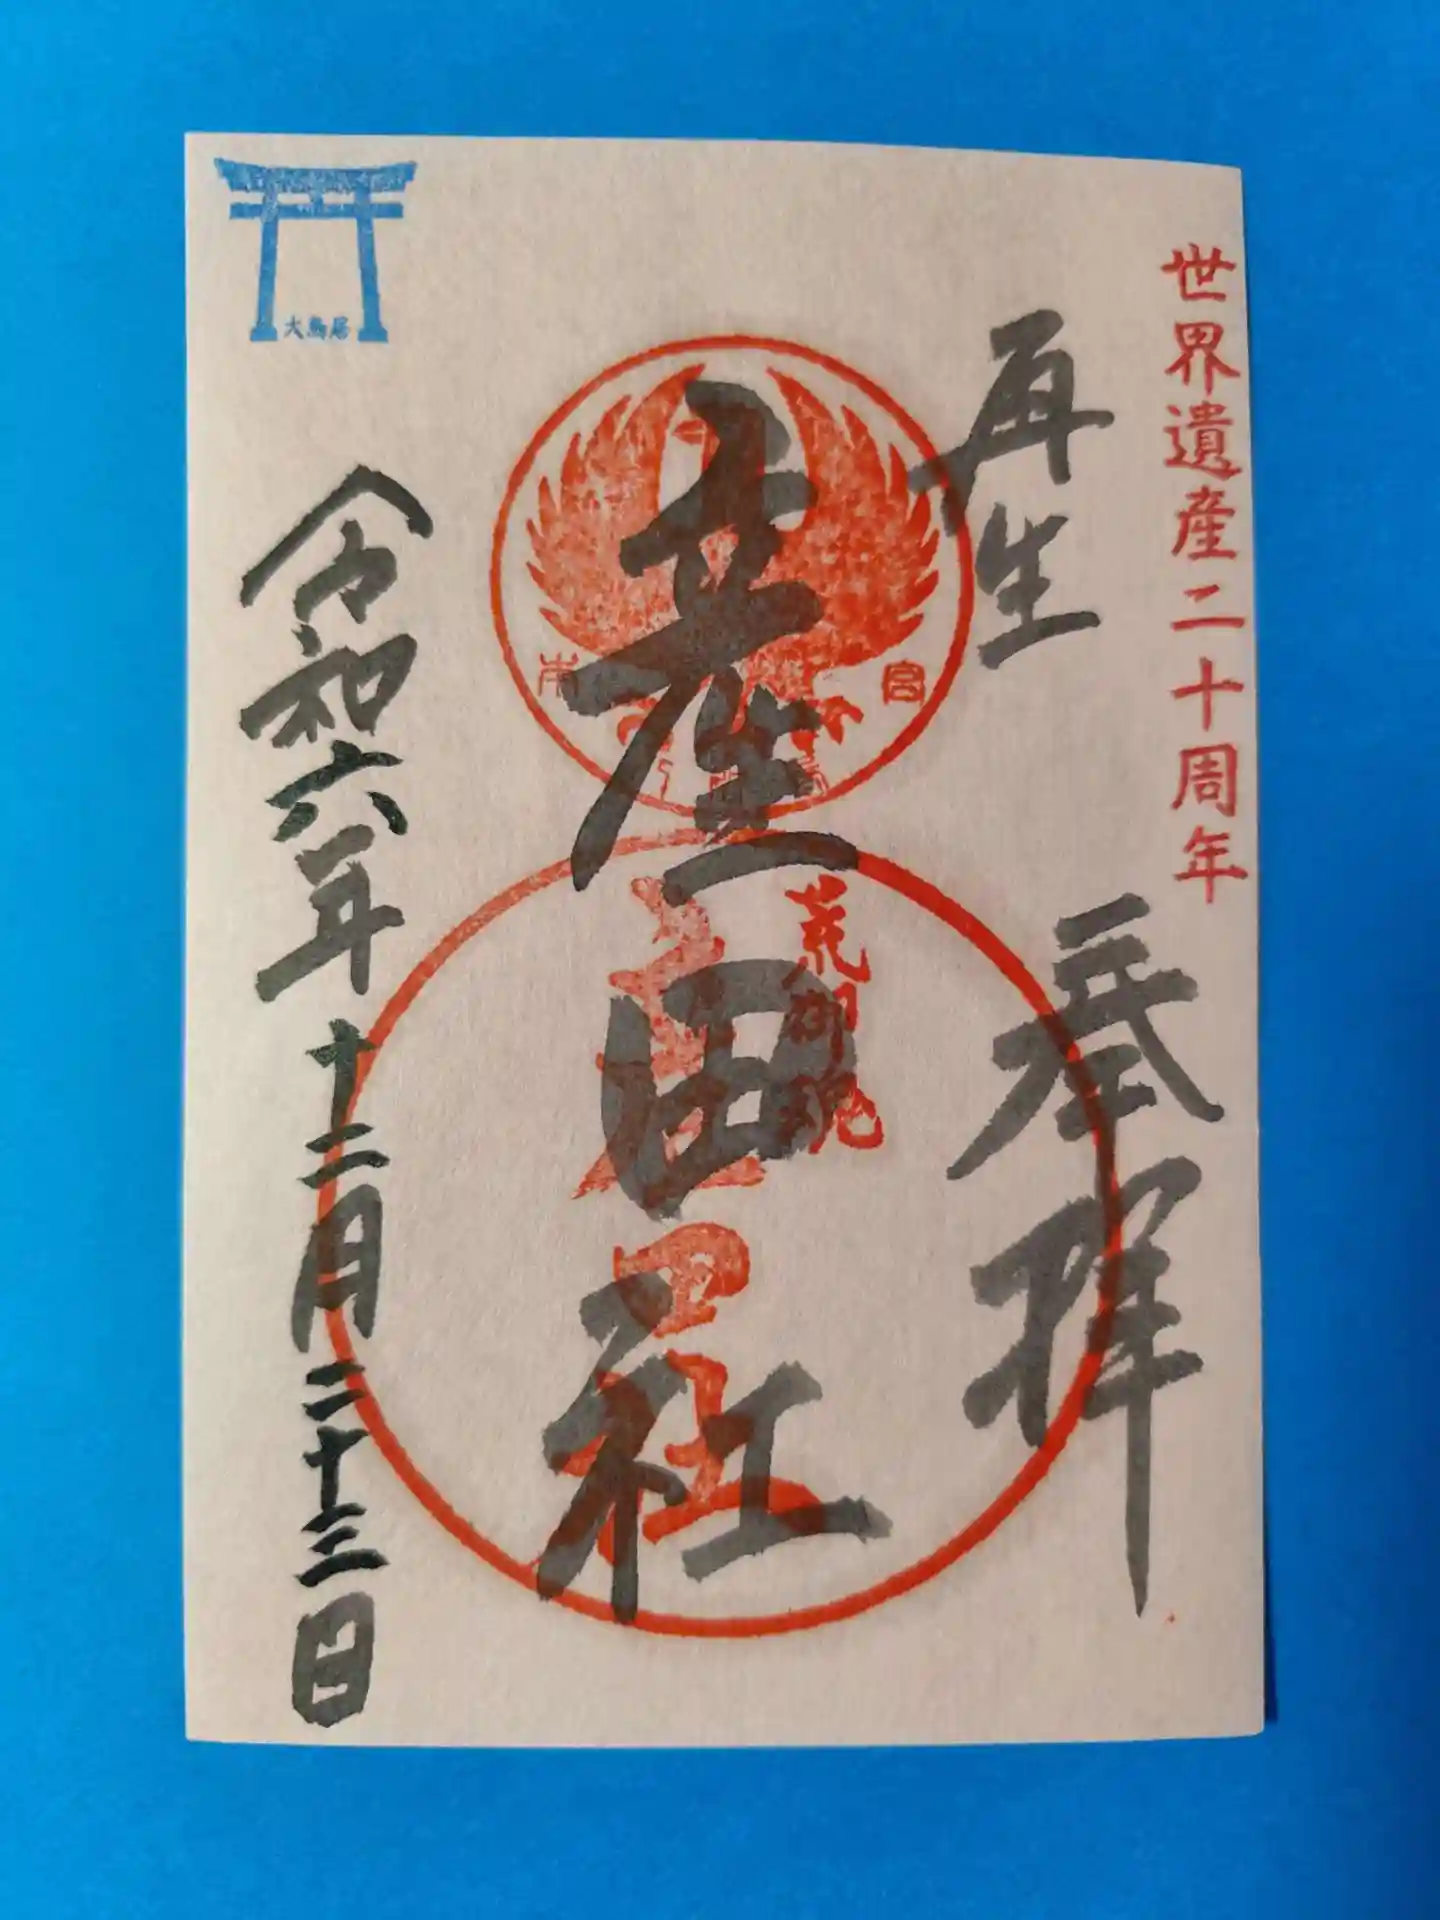 世界遺産二十周年
再生
奉拝
産田社
荒御魂
産田社
本
宮
令和六年十二月二十三日
大鳥居